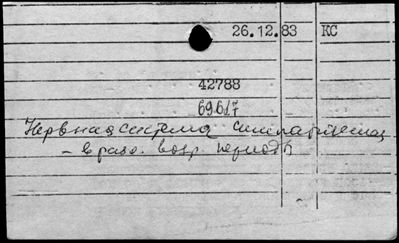 26.12.83 КС
42788
69617
Нервная система симпатическая
– в разл. возр. периоды